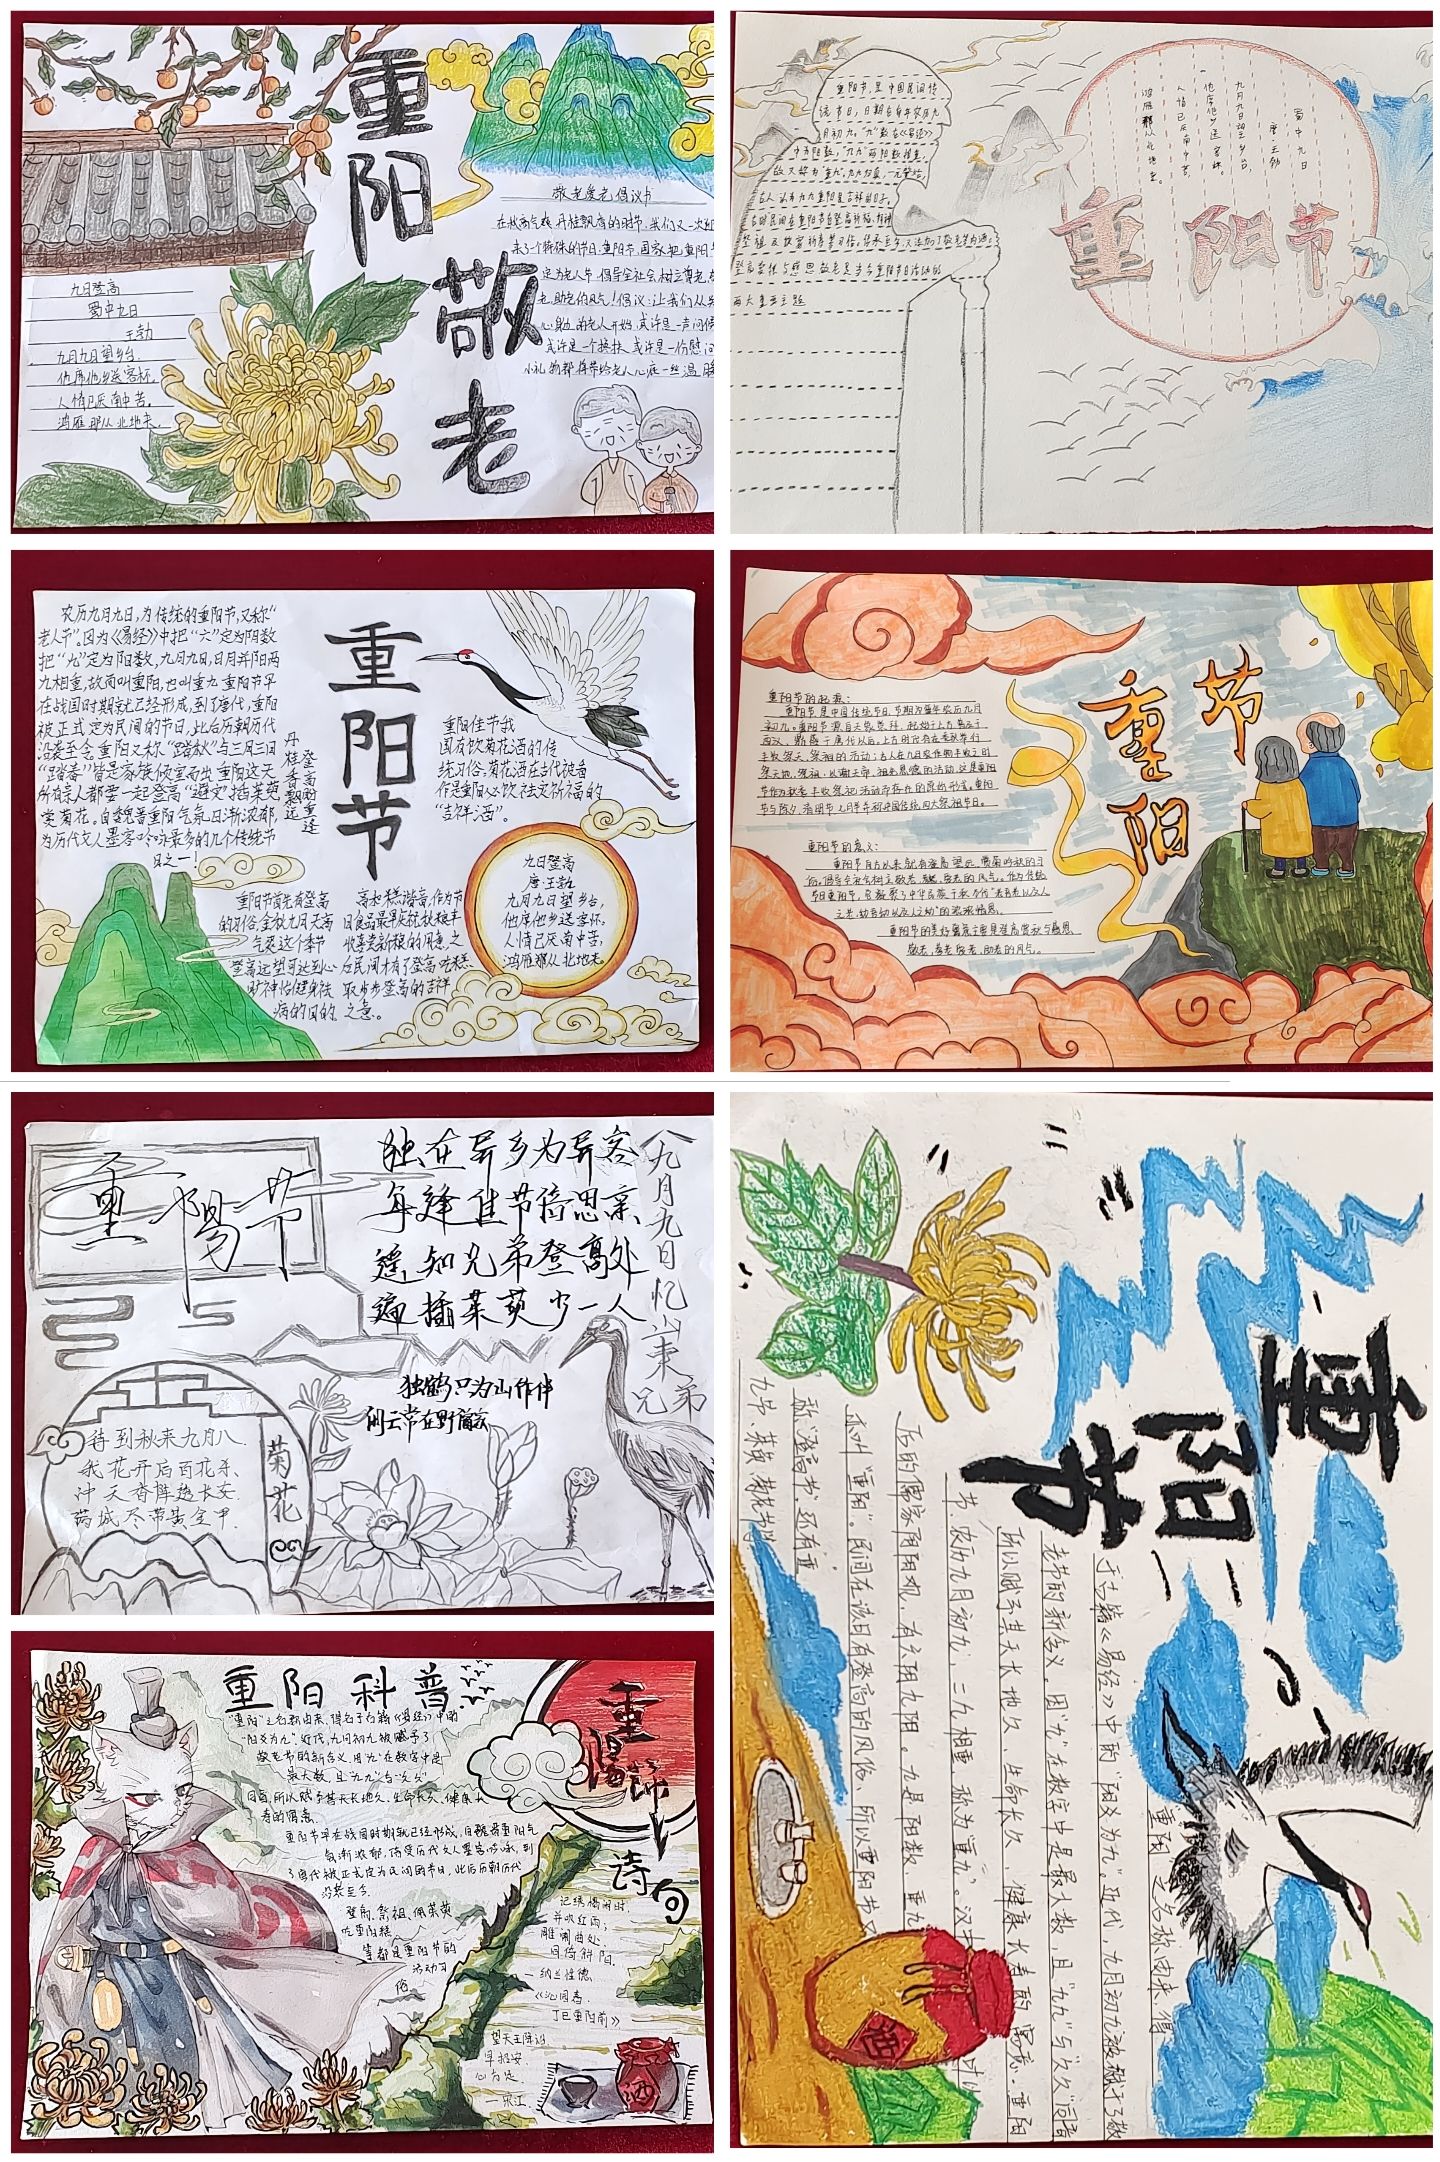 重阳
敬老
敬老爱老倡议书
在秋高气爽,丹桂飘香的时节,我们又一次迎
来了个特殊的节日:重阳节,国家把重阳节
定为老人节,倡导全社会树立尊老、
老、助老的风气!倡议:让我们从
心身边的老人开始,或许是一声问候
或许是一个搀扶,或许是一份慰问
小礼物都将带给老人心底一丝温暖
九日登高
蜀中九日
王勃
九月九日望乡台,
他席他乡送客杯。
人情已厌南中苦,
鸿雁那从北地来。
重阳节,是中国民间传
统节日,日期在每年农历九
月初九。“九”数在《易经》
中为阳数,“九九”两阳数相重,
故又称为“重九”
古人认为九九重阳是吉祥的日子。
登高赏秋与感恩敬老是当今重阳节日活动的
两大重要主题
蜀中九日
唐·王勃
九月九日望乡台,
他席他乡送客杯。
人情已厌南中苦,
鸿雁那从北地来。
重阳节
农历九月九日,为传统的重阳节,又称“
老人节”。因为《易经》中把“六”定为阴数
把“九”定为阳数,九月九日,日月并阳两
九相重,故而叫重阳,也叫重九 重阳节早
在战国时期就已经形成,到了唐代,重阳
被正式定为民间的节日,此后历朝历代
沿袭至今。重阳又称“踏秋”与三月三日
“踏春”皆是家族倾室而出 重阳这天
所有亲人都要一起登高“避灾”插茱萸
赏菊花。自魏晋重阳气氛日渐浓郁,
为历代文人墨客吟咏最多的几个传统节
日之一!
丹桂香飘远
登高盼重逢
重阳节
重阳佳节我
国有饮菊花酒的传
统习俗,菊花酒在古代被看
作是重阳必饮祛灾祈福的
“吉祥酒”。
重阳节首先有登高
的习俗,金秋九月天高
气爽这个季节
登高远望可达到心
旷神怡健身祛
病的目的
高和糕谐音,作为节
日食品最早是庆祝秋粮丰
收喜尝新粮的用意,之
后民间才有了登高吃糕
取步步登高的吉祥
之意。
九日登高
唐·王勃
九月九日望乡台,
他席他乡送客怀,
人情已厌南中苦,
鸿雁那从北地来。
重阳节
重阳节的起源:
重阳节是中国传统节日,节期为每年农历九月
初九。重阳节源自天象崇拜,起始于上古,普及于
西汉,鼎盛于唐代以后。上古时它有在季秋举行
丰收祭天、祭祖的活动;古人在九月农作物丰收之时
祭天地、祭祖,以谢天帝、祖先恩德的活动,这是重阳
节作为秋季丰收祭祀活动而存在的原始形式。重阳
节与除夕、清明节、七月半车称中国传统四大祭祖节日。
重阳节的意义:
之老,幼吾幼以及人之幼”的浓浓情愫。
重阳节的美好寓意主要是登高赏秋与感恩
敬老,尊老敬老、助老的风气。
重陽节
独在异乡为异客
每逢佳节倍思亲
遥知兄弟登高处
遍插茱萸少一人
九月九日忆山东兄弟
独鹤只为山作伴
闲云常在野
待到秋来九月八
我花开后百花杀
冲天香阵透长安
满城尽带黄金甲
菊花
重阳科普
“重阳”之名称由来,得名于古籍《易经》中的
“阳爻为九”。近代,九月初九被赋予了
敬老节的新含义,因“九”在数字中是
最大数,且“九九”与“久久”
同音,所以赋予其天长地久、生命长久、健康长
寿的寓意。
重阳节早在战国时期就已经形成,自魏晋重阳气
氛渐浓郁,倍受历代文人墨客吟咏,到
了唐代被正式定为民间的节日,此后历朝历代
沿袭至今。
登高、祭祖、佩茱萸
吃重阳糕
等都是重阳节的
活动习
俗
重陽節
诗句
记绣榻闲时,
并吹红雨;
雕阑曲处,
同倚斜阳。
—纳兰性德
《沁园春·
丁巳重阳前》
望天王降诏
早招安,
心方足。
—宋江
酒
重阳节
重阳 之名称由来,得
于古籍《易经》中的“阳爻为九”。近代,九月初九被赋予了敬
老节的新含义。因“九”在数字中是最大数,且“九九”与“久久”同音
所以赋予其天长地久、生命长久、健康长寿的寓意。重阳
节,农历九月初九,二九相重,称为“重九”。汉中
后的儒家阴阳观,有六阴九阳。九是阳数,重九
亦叫“重阳”。民间在该日有登高的风俗,所以重阳节又
称“登高节”。还有重
九节、茱萸、菊花节等
酒